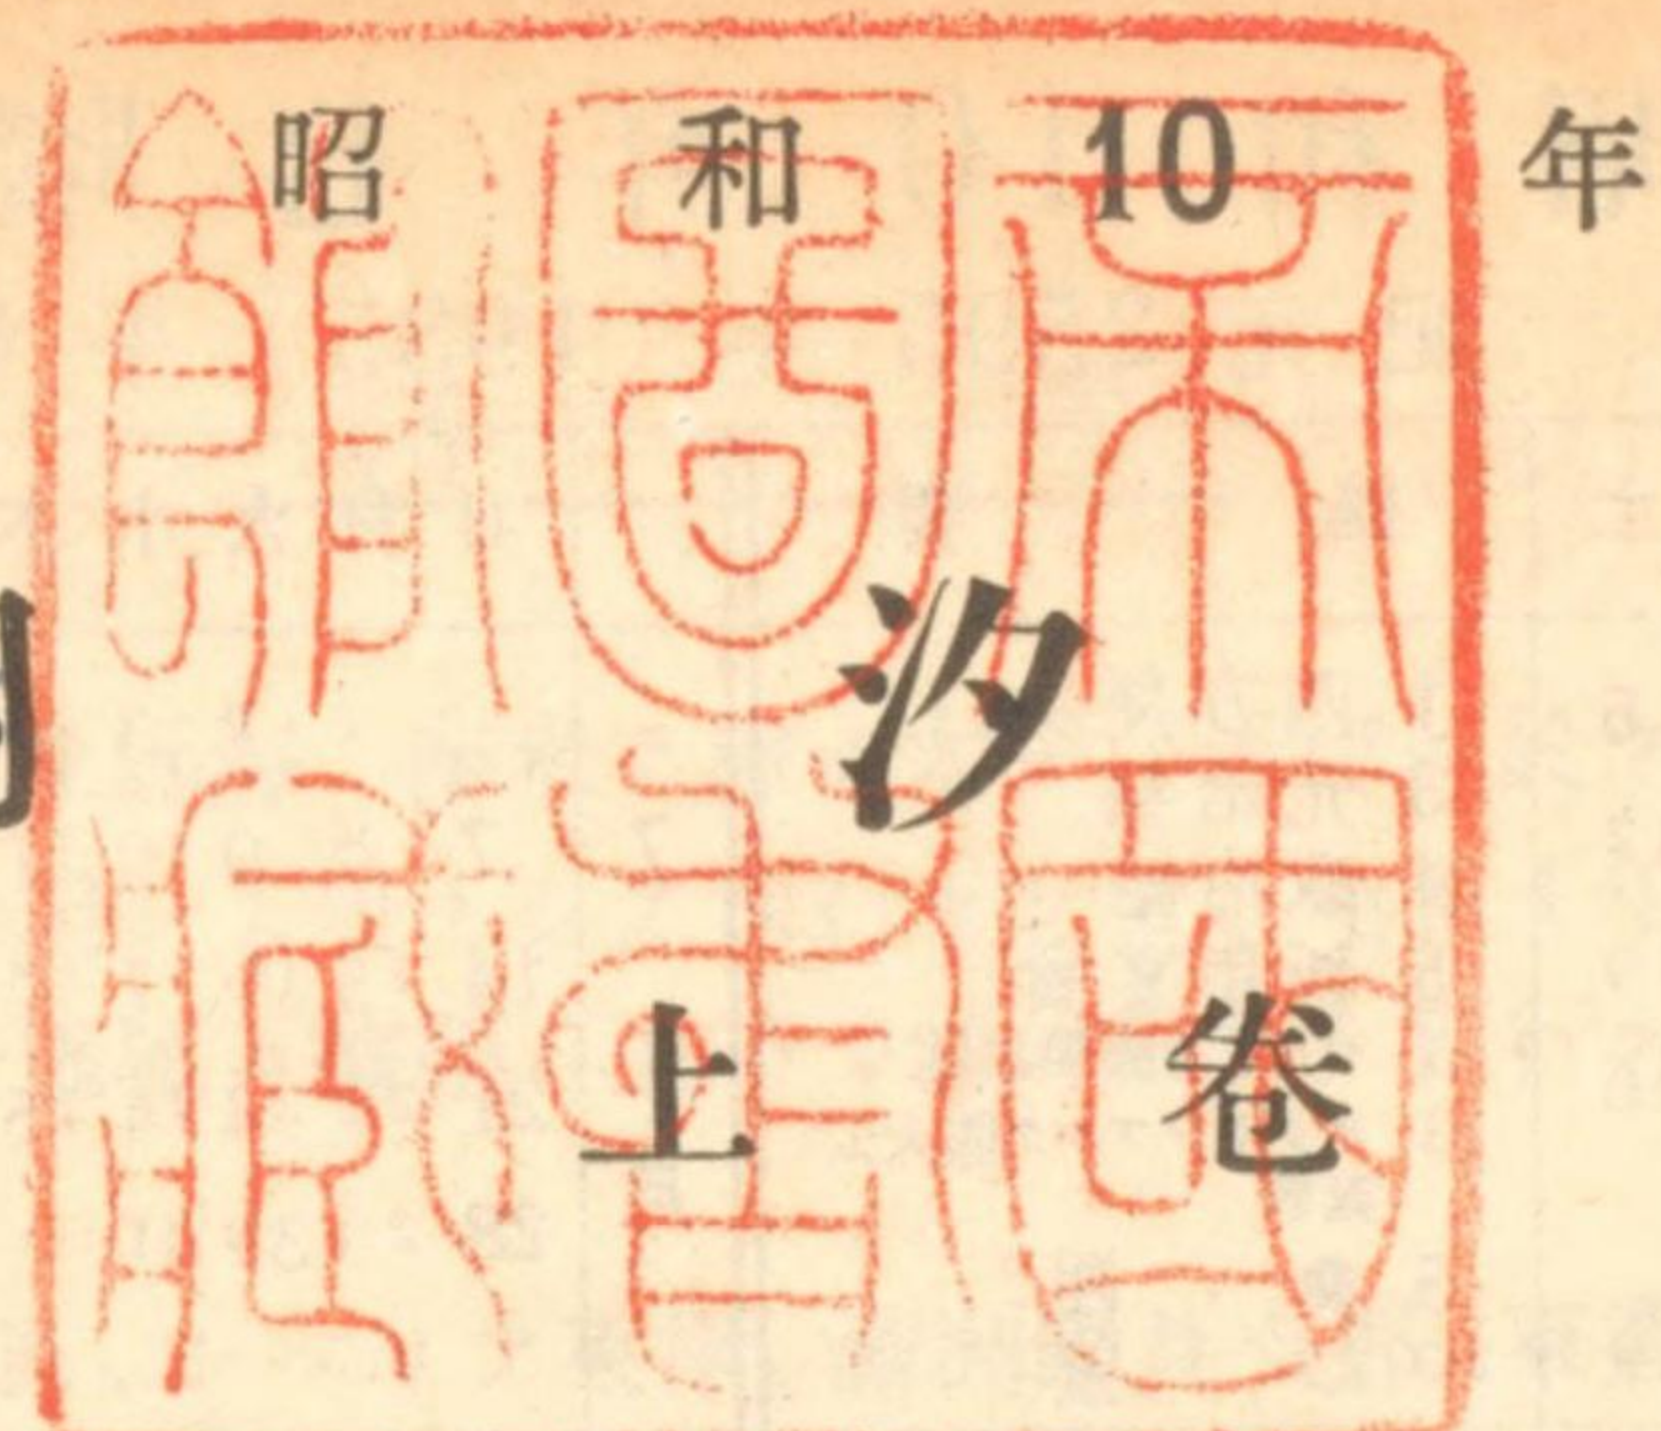 昭和10年
汐
上卷
帝國
圖書
館藏